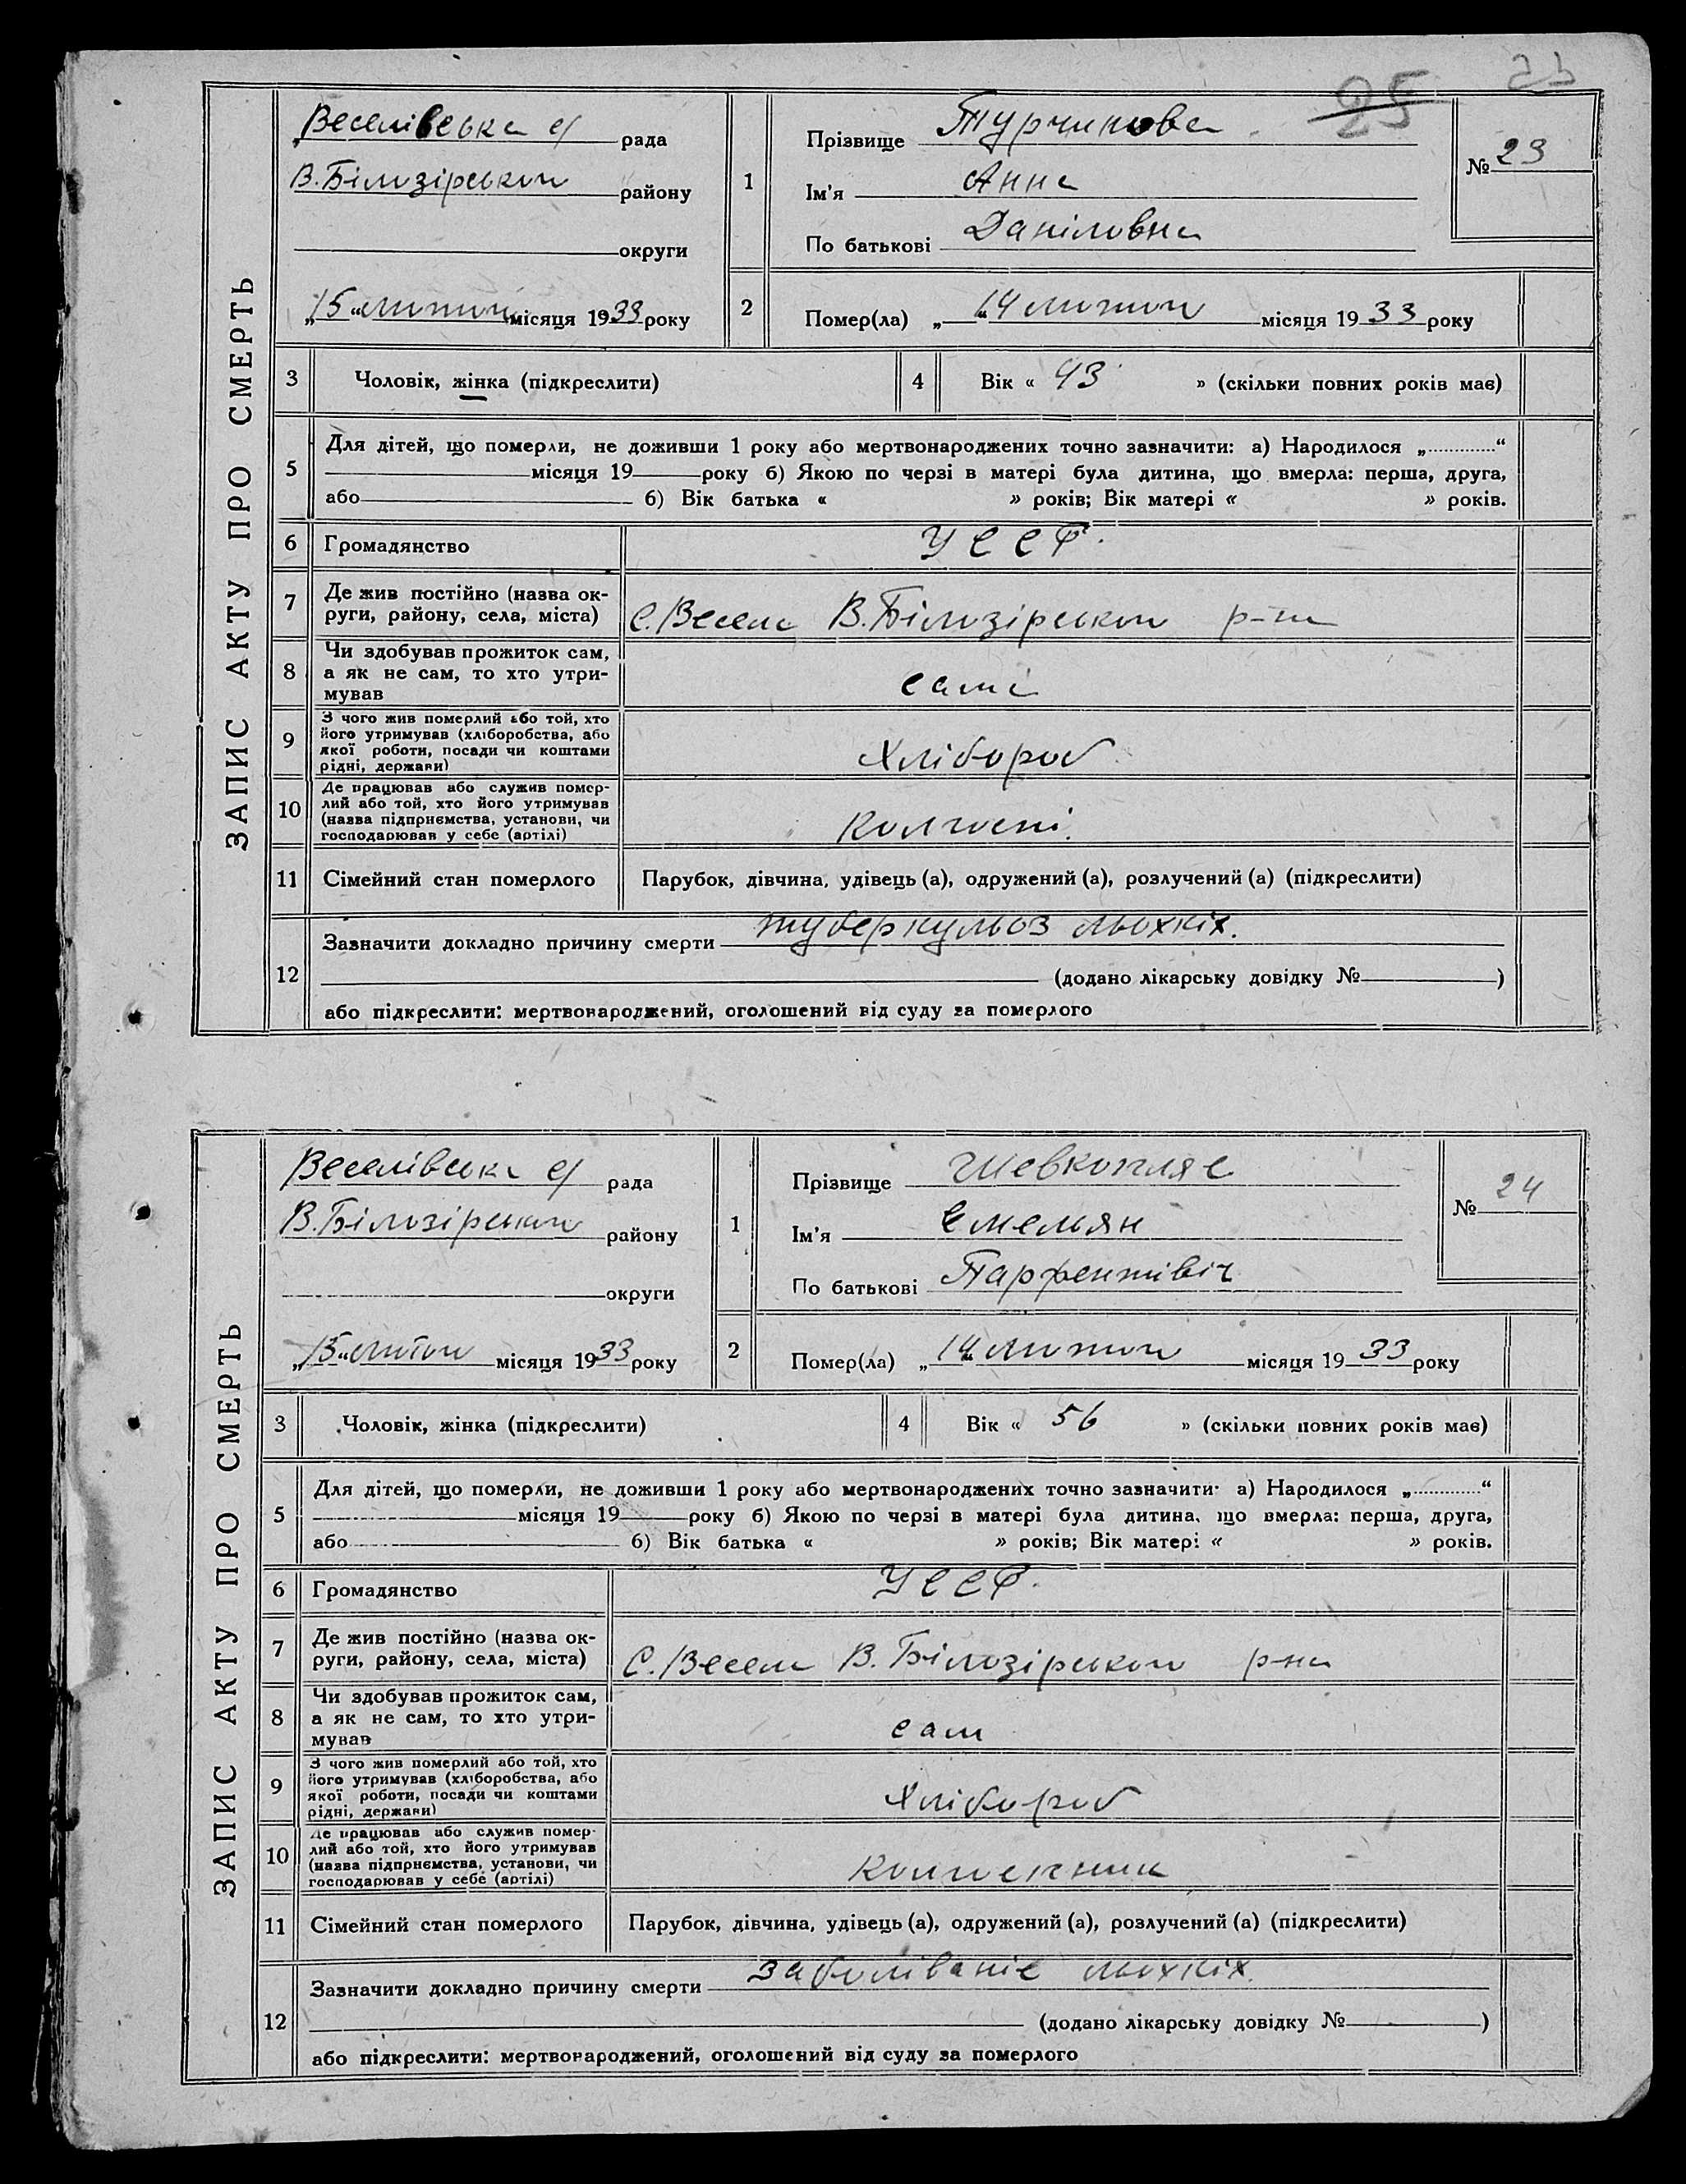 25
ЗАПИС АКТУ ПРО СМЕРТЬ
Веселівська с/ рада
В.Білозірського району
округи
„15“ лютого місяця 1933 року
1
Прізвище Турчинова
Ім'я Анна
По батькові Даніловна
№ 23
2
Помер(ла) „14“ лютого місяця 1933 року
3 Чоловік, жінка (підкреслити)
4 Вік « 43 » (скільки повних років має)
5
Для дітей, що померли, не доживши 1 року або мертвонароджених точно зазначити: а) Народилося „.............“
місяця 19 року б) Якою по черзі в матері була дитина, що вмерла: перша, друга,
або б) Вік батька « » років; Вік матері « » років.
6 Громадянство УССР.
7
Де жив постійно (назва ок-
руги, району, села, міста) С. Веселе В.Білозірського р-на
8
Чи здобував прожиток сам,
а як не сам, то хто утри-
мував сама
9
З чого жив померлий або той, хто
його утримував (хліборобства, або
якої роботи, посади чи коштами
рідні, держави) Хлібороб
10
Де працював або служив помер-
лий або той, хто його утримував
(назва підприємства, установи, чи
господарював у себе (артілі) Колгоспі.
11 Сімейний стан померлого Парубок, дівчина, удівець (а), одружений (а), розлучений (а) (підкреслити)
12
Зазначити докладно причину смерти туберкульоз льохкіх.
(додано лікарську довідку № )
або підкреслити: мертвонароджений, оголошений від суду за померлого
ЗАПИС АКТУ ПРО СМЕРТЬ
Веселівська с/ рада
В.Білозірського району
округи
„15“ лютого місяця 1933 року
1
Прізвище Шевкопляс
Ім'я Емельян
По батькові Парфентівіч
№ 24
2
Помер(ла) „14“ лютого місяця 1933 року
3 Чоловік, жінка (підкреслити)
4 Вік « 56 » (скільки повних років має)
5
Для дітей, що померли, не доживши 1 року або мертвонароджених точно зазначити: а) Народилося „.............“
місяця 19 року б) Якою по черзі в матері була дитина, що вмерла: перша, друга,
або б) Вік батька « » років; Вік матері « » років.
6 Громадянство УССР.
7
Де жив постійно (назва ок-
руги, району, села, міста) С. Веселе В. Білозірського р-на
8
Чи здобував прожиток сам,
а як не сам, то хто утри-
мував сам
9
З чого жив померлий або той, хто
його утримував (хліборобства, або
якої роботи, посади чи коштами
рідні, держави) Хлібороб
10
Де працював або служив помер-
лий або той, хто його утримував
(назва підприємства, установи, чи
господарював у себе (артілі)
11 Сімейний стан померлого Парубок, дівчина, удівець (а), одружений (а), розлучений (а) (підкреслити)
12
Зазначити докладно причину смерти заболіваніе льохкіх.
(додано лікарську довідку № )
або підкреслити: мертвонароджений, оголошений від суду за померлого